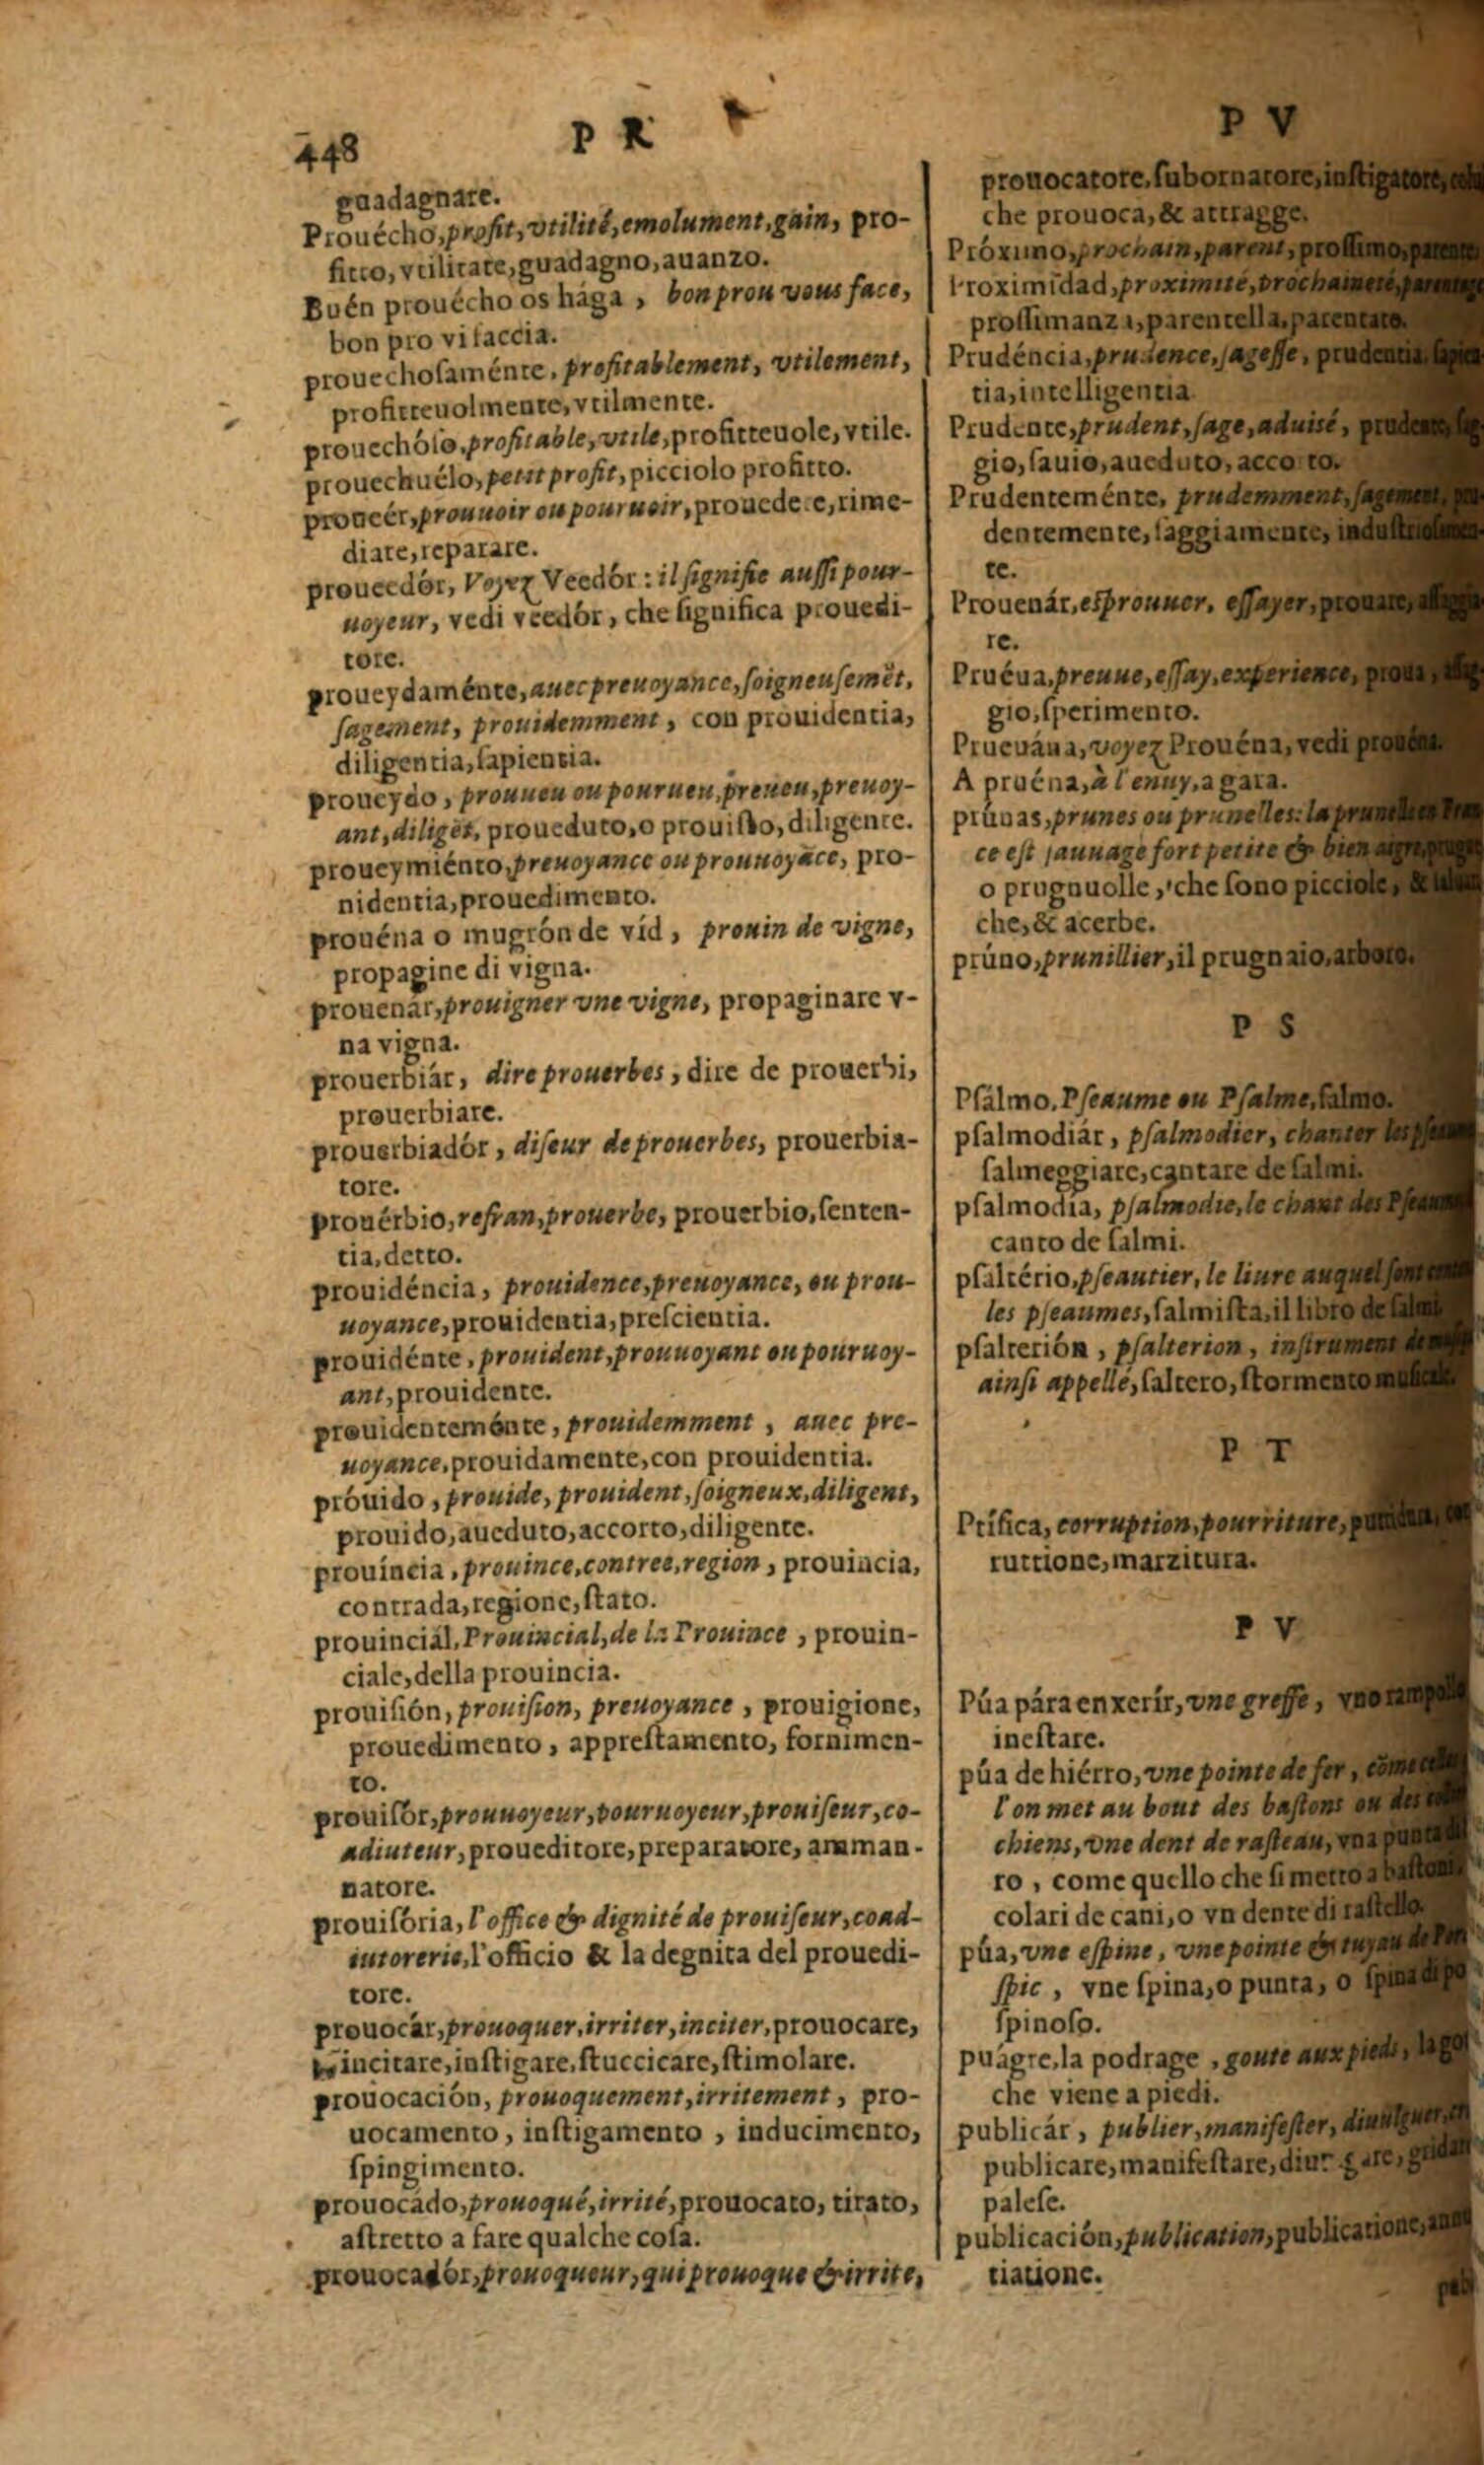 448
P R
guadagnare.
Prouécho, profit, vtilité, emolument, gain, pro-
fitto, vtilitate, guadagno, auanzo.
Buén prouécho os hága, bon prou vous face,
bon pro vi faccia.
prouechoſaménte, profitablement, vtilement,
profitteuolmente, vtilmente.
prouechóſo, profitable, vtile, profitteuole, vtile.
prouechuélo, petit profit, picciolo profitto.
proueér, prouuoir ou pouruoir, prouedere, rime-
diare, reparare.
proueedór, Voyez Veedór: il ſignifie auſſi pour-
uoyeur, vedi veedór, che ſignifica prouedi-
tore.
proueydaménte, auec preuoyance, ſoigneuſemēt,
ſagement, prouidemment, con prouidentia,
diligentia, ſapientia.
proueydo, prouueu ou pourueu, preueu, preuoy-
ant, diligēt, proueduto, o prouiſto, diligente.
proueymiénto, preuoyance ou prouuoyāce, pro-
uidentia, prouedimento.
prouéna o mugrón de víd, prouin de vigne,
propagine di vigna.
prouenár, prouigner vne vigne, propaginare v-
na vigna.
prouerbiár, dire prouerbes, dire de prouerbi,
prouerbiare.
prouerbiadór, diſeur de prouerbes, prouerbia-
tore.
prouérbio, refran, prouerbe, prouerbio, ſenten-
tia, detto.
prouidéncia, prouidence, preuoyance, ou prou-
uoyance, prouidentia, preſcientia.
prouidénte, prouident, prouuoyant ou pouruoy-
ant, prouidente.
prouidenteménte, prouidemment, auec pre-
uoyance, prouidamente, con prouidentia.
próuido, prouide, prouident, ſoigneux, diligent,
prouido, aueduto, accorto, diligente.
prouíncia, prouince, contree, region, prouincia,
contrada, regione, ſtato.
prouinciál, Prouincial, de la Prouince, prouin-
ciale, della prouincia.
prouiſión, prouiſion, preuoyance, prouigione,
prouedimento, appreſtamento, fornimen-
to.
prouiſór, prouuoyeur, pouruoyeur, prouiſeur, co-
adiuteur, proueditore, preparatore, amman-
natore.
prouiſória, l'office & dignité de prouiſeur, coad-
iutorerie, l'officio & la degnita del prouedi-
tore.
prouocár, prouoquer, irriter, inciter, prouocare,
incitare, inſtigare, ſtuccicare, ſtimolare.
prouocación, prouoquement, irritement, pro-
uocamento, inſtigamento, inducimento,
ſpingimento.
prouocádo, prouoqué, irrité, prouocato, tirato,
aſtretto a fare qualche coſa.
prouocadór, prouoqueur, qui prouoque & irrite,
P V
prouocatore, ſubornatore, inſtigatore,
che prouoca, & attragge.
Próximo, prochain, parent, proſſimo, parente.
Proximidad, proximité, prochaineté, parentage
proſſimanza, parentella, parentato.
Prudéncia, prudence, ſageſſe, prudentia, ſapien-
tia, intelligentia
Prudente, prudent, ſage, aduisé, prudente, ſag-
gio, ſauio, aueduto, accorto.
Prudenteménte, prudemment, ſagement, pru-
dentemente, ſaggiamente, induſtrioſamen-
te.
Prouenár, eſprouuer, eſſayer, prouare, aſſaggia-
re.
Pruéua, preuue, eſſay, experience, proua, aſſag-
gio, ſperimento.
Prueuána, voyez Prouéna, vedi prouéna.
A pruéna, à l'enuy, a gara.
prúnas, prunes ou prunelles: la prunelle en Fran
ce eſt ſauuage fort petite & bien aigre,
o prugnuolle, che ſono picciole, &
che, & acerbe.
prúno, prunillier, il prugnaio, arbore.
P S
Pſálmo, Pſeaume ou Pſalme, ſalmo.
pſalmodiár, pſalmodier, chanter les
ſalmeggiare, cantare de ſalmi.
pſalmodía, pſalmodie, le chant des
canto de ſalmi.
pſaltério, pſeautier, le liure auquel ſont
les pſeaumes, ſalmiſta, il libro de ſalmi.
pſalterión, pſalterion, inſtrument de
ainſi appellé, ſaltero, ſtormento muſicale.
P T
Ptíſica, corruption, pourriture, cor
ruttione, marzitura.
P V
Púa pára enxerír, vne greffe, vno rampollo
ineſtare.
púa de hiérro, vne pointe de fer, cōme
l'on met au bout des baſtons ou des
chiens, vne dent de raſteau, vna punta di
ro, come quello che ſi metto a baſtoni,
colari de cani, o vn dente di raſtello.
púa, vne eſpine, vne pointe & tuyau de
ſpic, vne ſpina, o punta, o ſpina di po
ſpinoſo.
puágre, la podrage, goute aux pieds,
che viene a piedi.
publicár, publier, manifeſter, diuulguer,
publicare, manifeſtare, gridare
paleſe.
publicación, publication, publicatione,
tiatione.